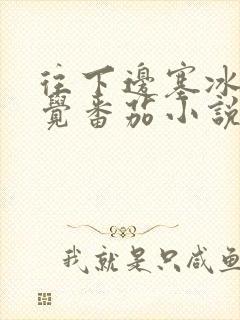 往下邊塞冰
覺番茄小說
我就是只咸鱼